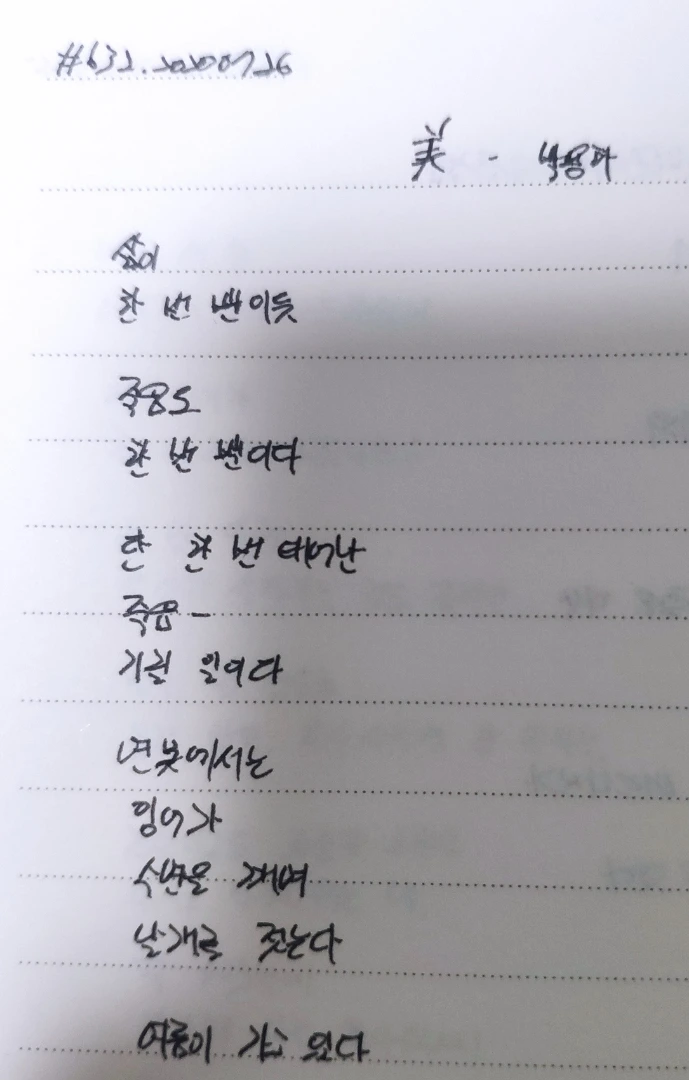 #632. 20200726
美 - 박용하
삶이
한 번 뿐이듯
죽음도
한 번 뿐이다
단 한 번 태어난
죽음 -
기릴 일이다
연못에서는
잉어가
수면을 깨며
날개를 젓는다
여름이 가고 있다